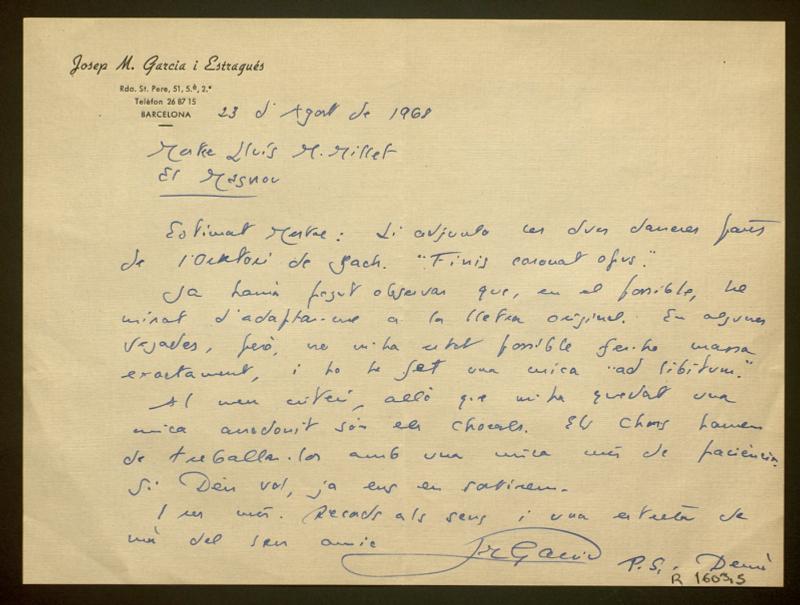 Josep M. Garcia i Estragués
Rda. St. Pere, 51, 5.è, 2.ª
Telèfon 26 87 15
BARCELONA
23 d'Agost de 1968
Mestre Lluís M. Millet
El Masnou
Estimat Mestre: Li adjunto les dues darreres parts
de l'Oratori de Bach. "Finis coronat opus."
Ja haurà pogut observar que, en el possible, he
mirat d'adaptar-me a la lletra original. En algunes
vegades, però, no m'ha estat possible fer-ho massa
exactament, i ho he fet una mica "ad libitum."
Al meu criteri, allò que m'ha quedat una
mica arrodonit són els chorals. Els chors haurem
de treballar-los amb una mica més de paciència.
Si Déu vol, ja ens en sortirem.
I res més. Records als seus i una estreta de
mà del seu amic JMGarcia
P.S. Demà
R 1603,5